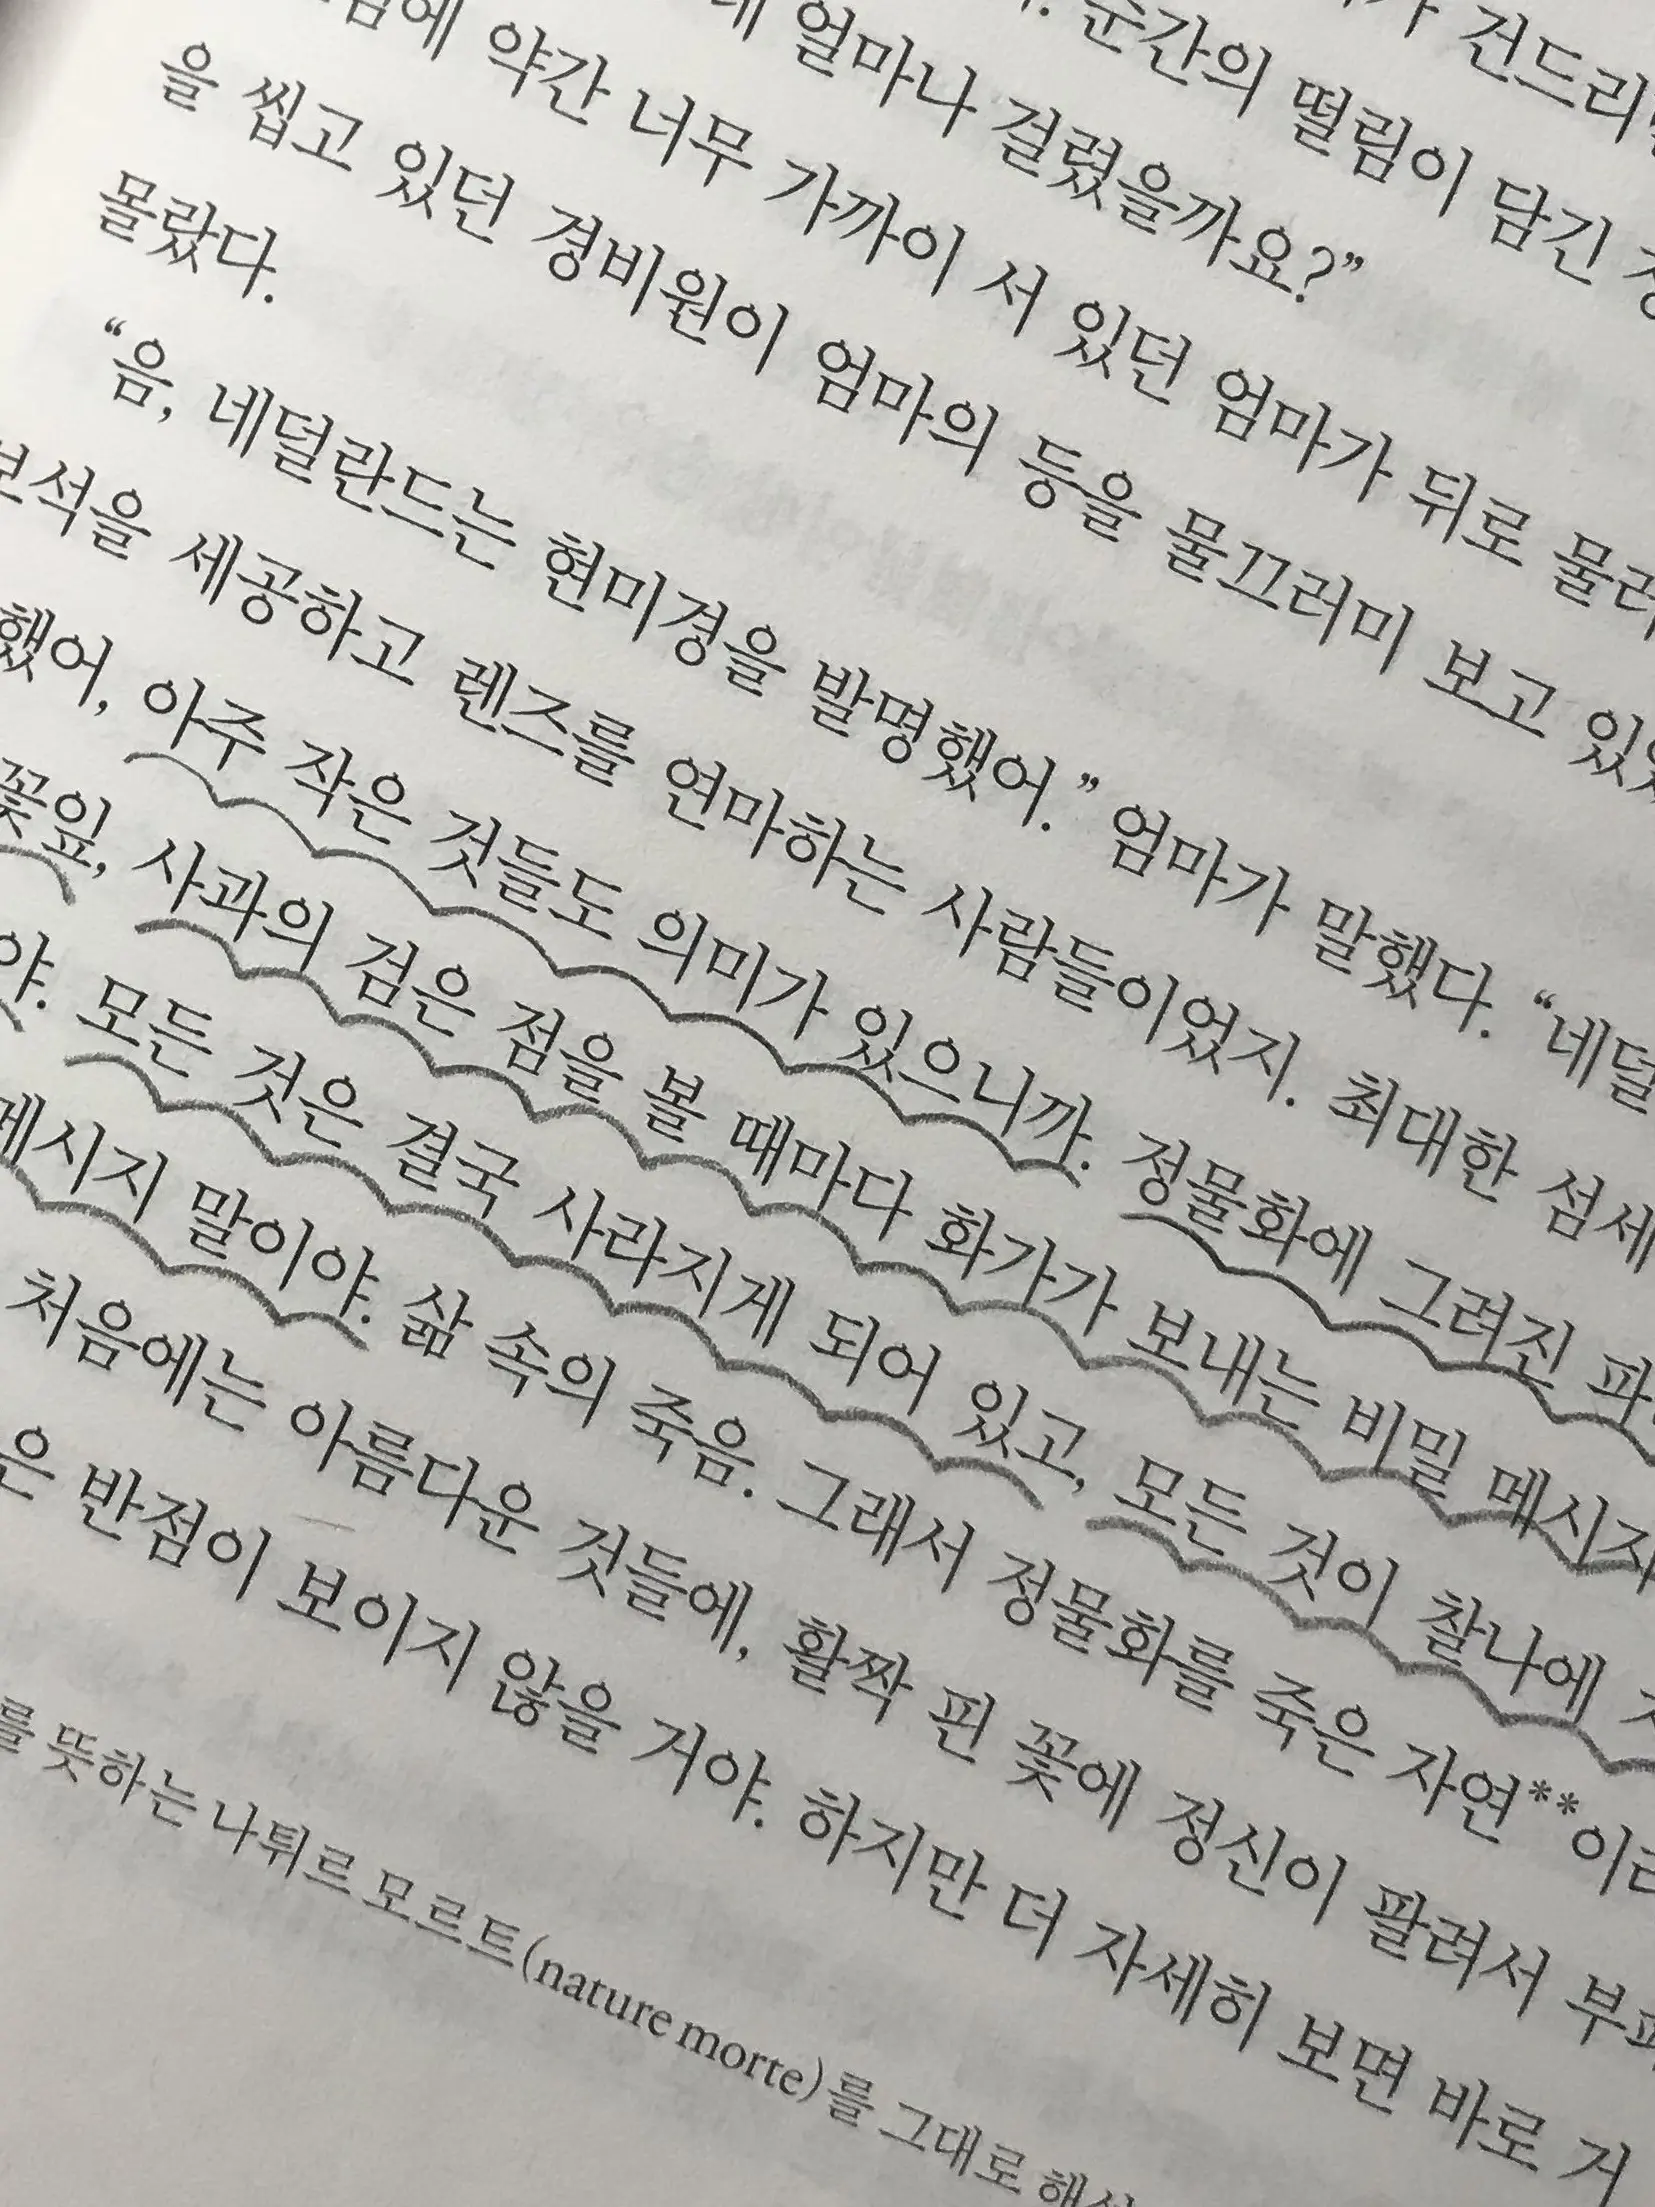 건드리
순간의 떨림이 담긴
얼마나 걸렸을까요?”
약간 너무 가까이 서 있던 엄마가 뒤로 물러
을 씹고 있던 경비원이 엄마의 등을 물끄러미 보고
몰랐다.
“음, 네덜란드는 현미경을 발명했어.” 엄마가 말했다. “네덜
보석을 세공하고 렌즈를 연마하는 사람들이었지. 최대한 섬세
했어, 아주 작은 것들도 의미가 있으니까. 정물화에 그려진 파
꽃잎, 사과의 검은 점을 볼 때마다 화가가 보내는 비밀 메시지
야. 모든 것은 결국 사라지게 되어 있고, 모든 것이 찰나에
메시지 말이야. 삶 속의 죽음. 그래서 정물화를 죽은 자연**이라
처음에는 아름다운 것들에, 활짝 핀 꽃에 정신이 팔려서 부패
은 반점이 보이지 않을 거야. 하지만 더 자세히 보면 바로 거
를 뜻하는 나튀르 모르트(nature morte)를 그대로